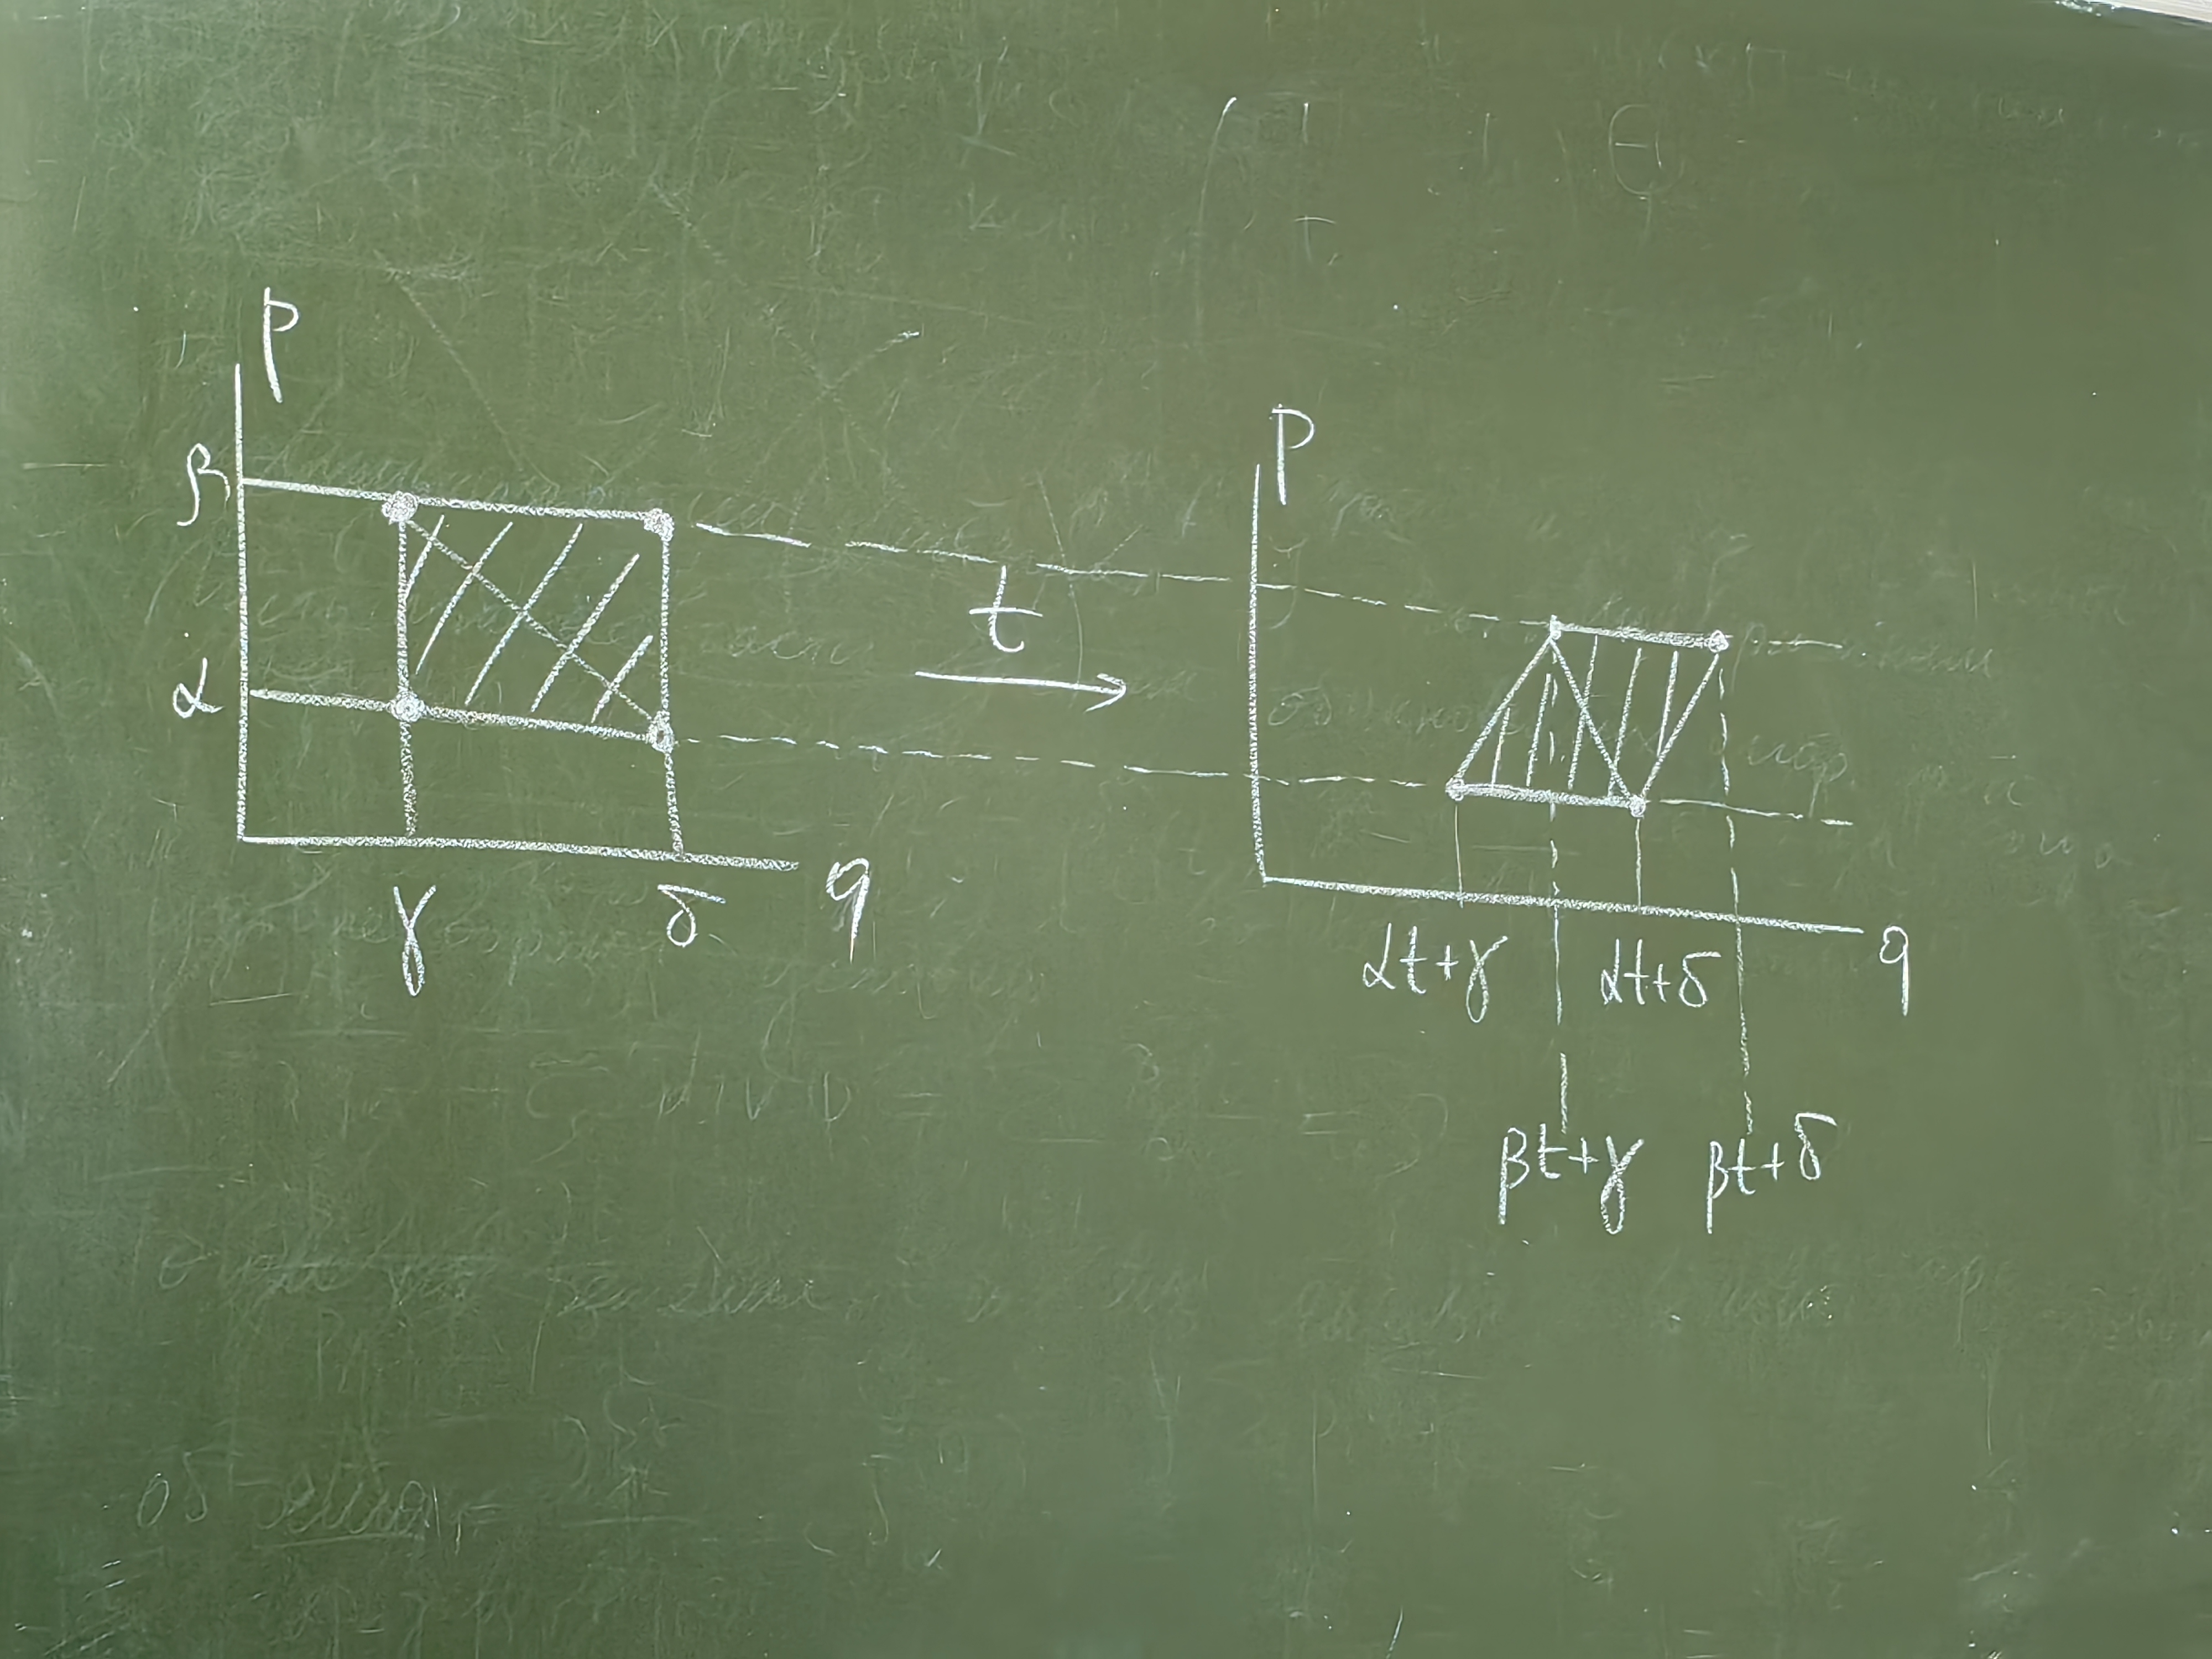 p
β
α
γ δ q
t
p
αt+γ αt+δ q
βt+γ βt+δ